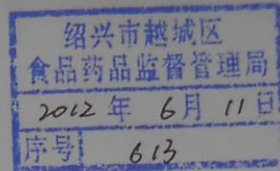 绍兴市越城区
食品药品监督管理局
2012年 6月 11日
序号 613